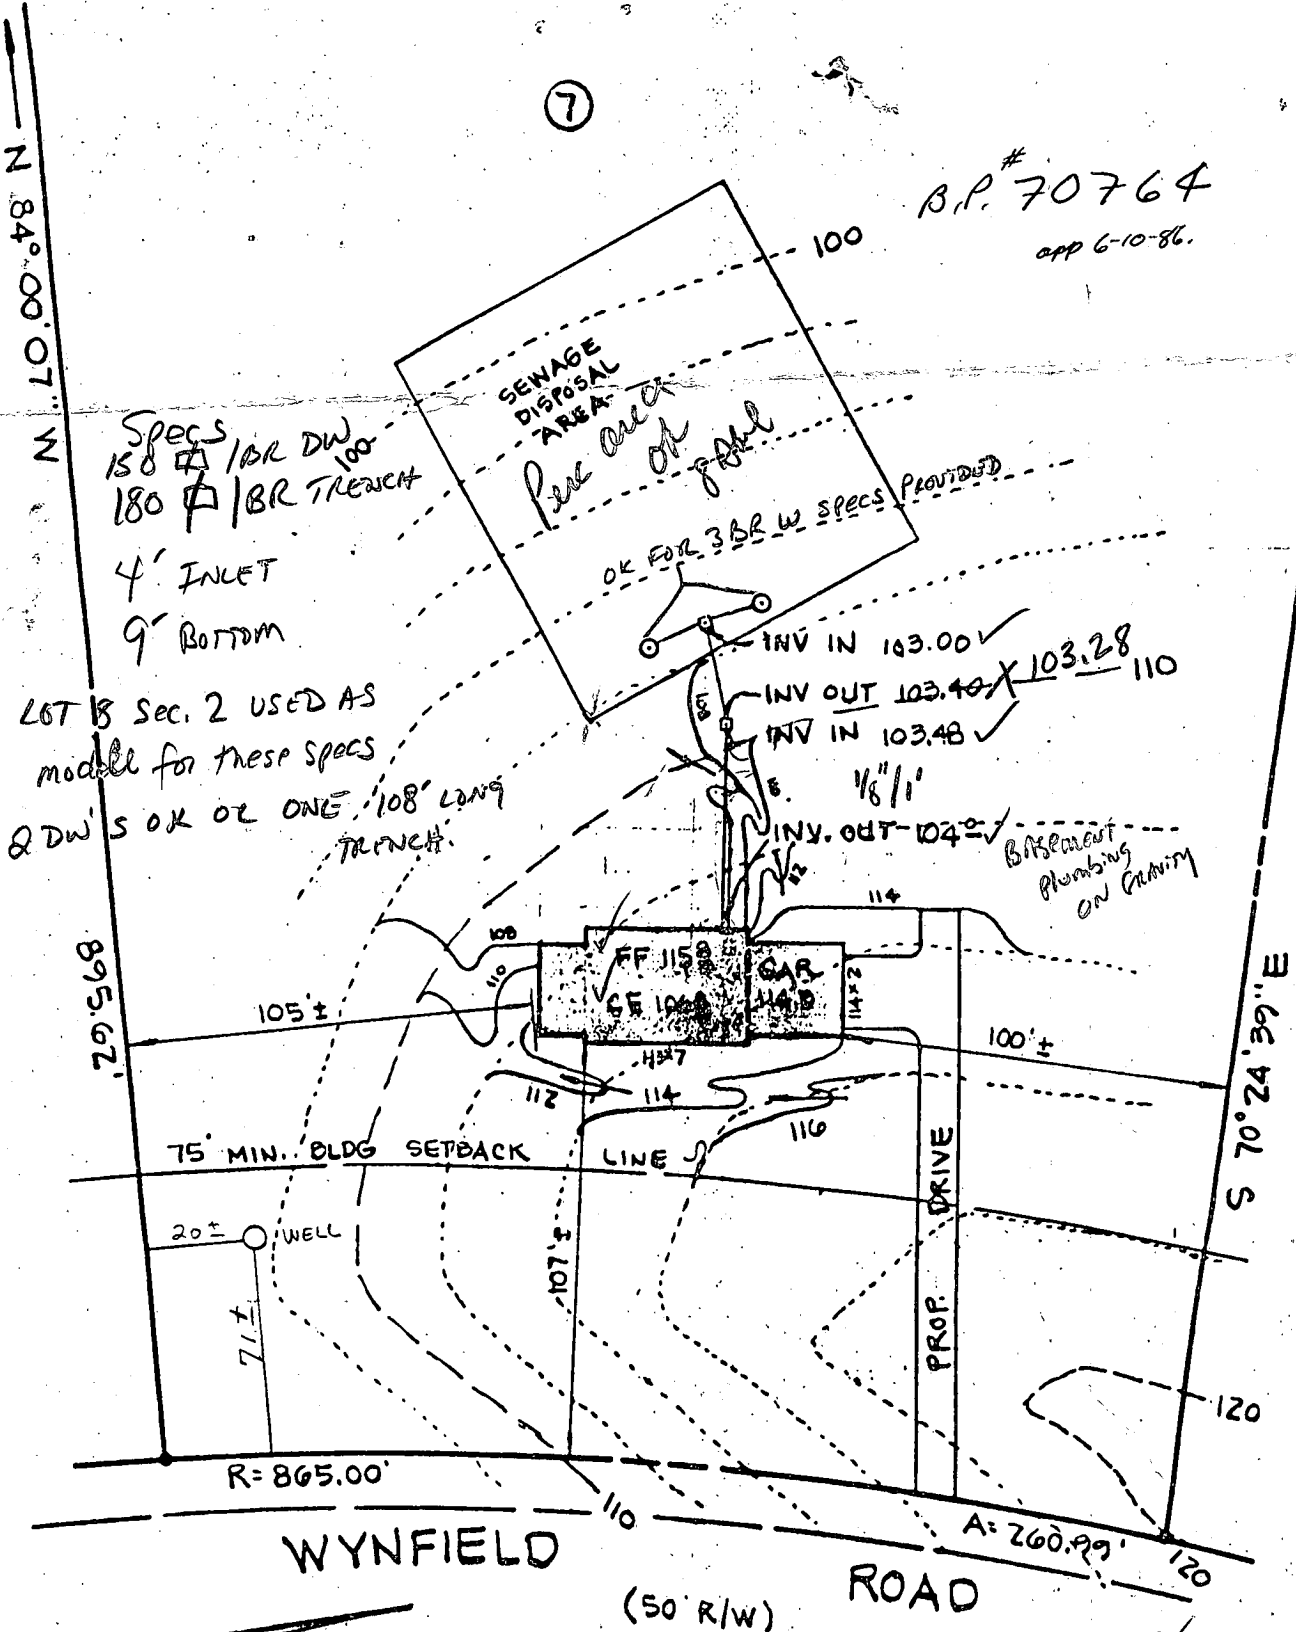 7
B.P. # 70764
app 6-10-86.
N 84° 00' 07" W
100
SEWAGE
DISPOSAL
AREA
Perc area
ok
Specs
158 /BR DW
100
180 /BR TRENCH
4' INLET
9' BOTTOM
OK FOR 3 BR W SPECS PROVIDED
LOT 8 Sec. 2 USED AS
model for these specs
2 DW'S OK OR ONE 108' LONG
TRENCH.
INV IN 103.00
INV OUT 103.40 X 103.28
110
INV IN 103.48
108
1/8"/1'
INV. OUT 104.0
BASEMENT
Plumbing
ON GRAVITY
112
114
108
110
FF 115.8
GAR
114.3
114x2
113x7
895.62'
105'±
100'±
S 70° 24' 39" E
112
114
116
75' MIN. BLDG SETBACK LINE
20±
WELL
71±
107'±
PROP. DRIVE
120
R=865.00'
110
A=260.99'
120
WYNFIELD ROAD
(50' R/W)